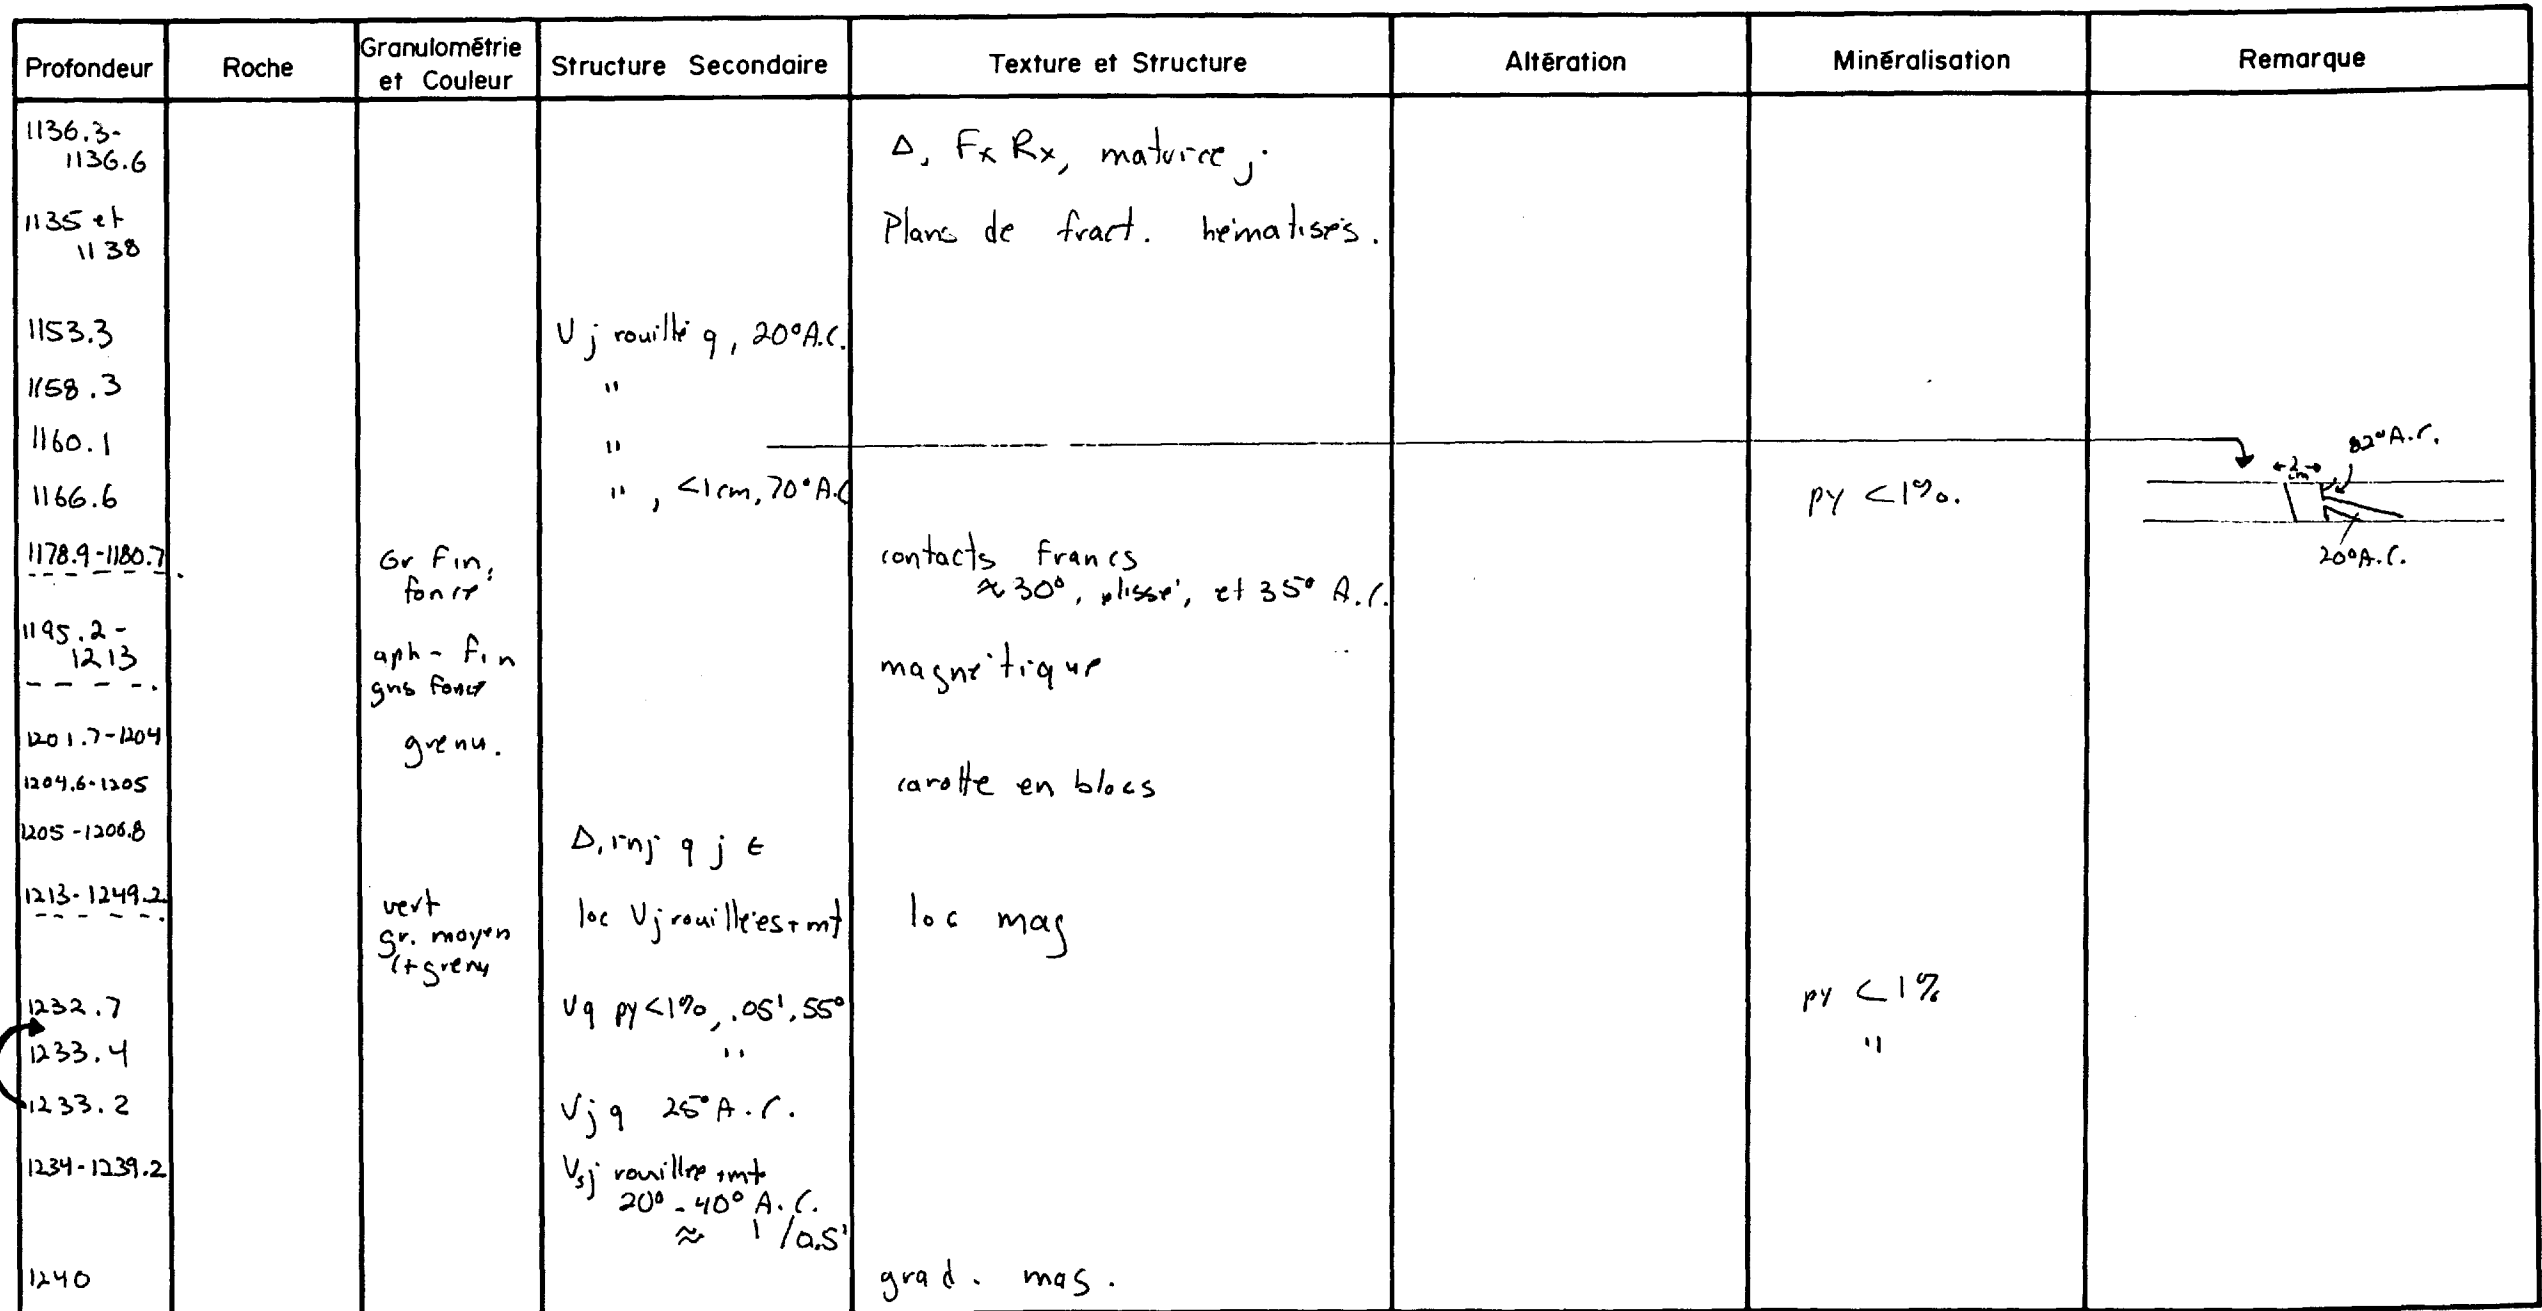 Profondeur Roche Granulométrie et Couleur Structure Secondaire Texture et Structure Altération Minéralisation Remarque
1136.3-
1136.6 Δ, Fx Rx, matrice j
1135 et
1138 Plans de fract. hématisés.
1153.3 V j rouillé q, 20° A.C.
1158.3 "
1160.1 "
82° A.C.
2
cm
1166.6 " , <1cm, 70° A.C py <1%.
20° A.C.
1178.9-1180.7 Gr Fin, contacts Francs
foncé ≈30°, plissé, et 35° A.C.
1195.2-
1213 aph - fin magnétique
foncé
1201.7-1204 grenu.
1204.6-1205 carotte en blocs
1205-1206.8 Δ, inj q j ε
1213-1249.2 vert loc Vj rouillées + mt loc mag
gr. moyen
(+ grenu
1232.7 Vq py <1%, .05', 55° py <1%
1233.4 " "
1233.2 Vj q 25° A.C.
1234-1239.2 Vsj rouillée + mt
20° - 40° A.C.
≈ 1 /0.5'
1240 grad. mag.